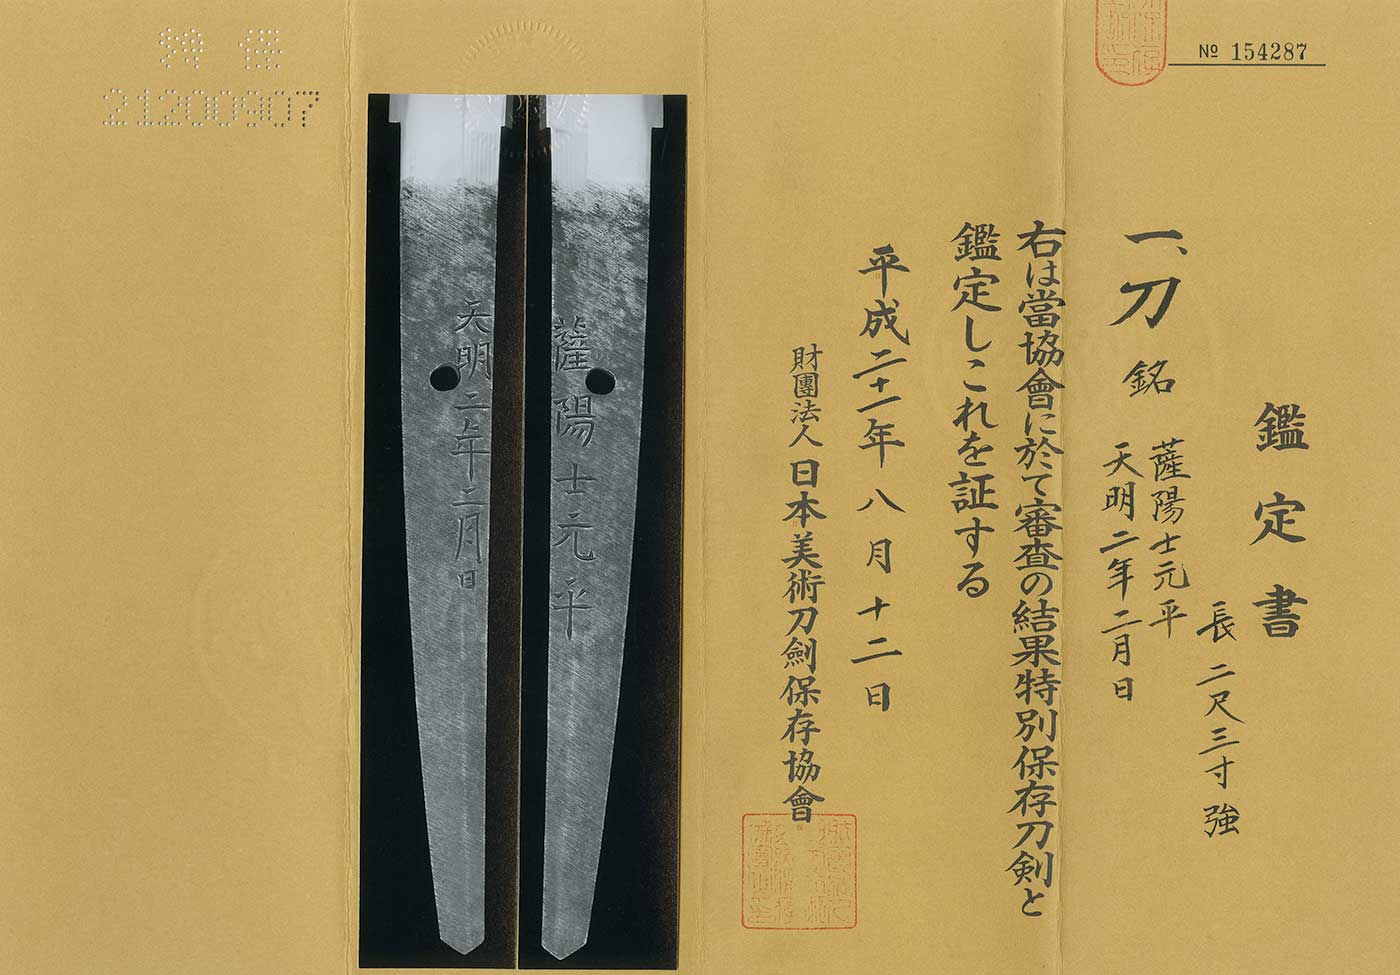 № 154287
鑑定書
長 二尺三寸強
一、刀 銘 薩陽士元平
天明二年二月日
右は當協會に於て審査の結果特別保存刀剣と
鑑定しこれを証する
平成二十一年八月十二日
財團法人日本美術刀劍保存協會
薩陽士元平
天明二年二月日
特保
21200907